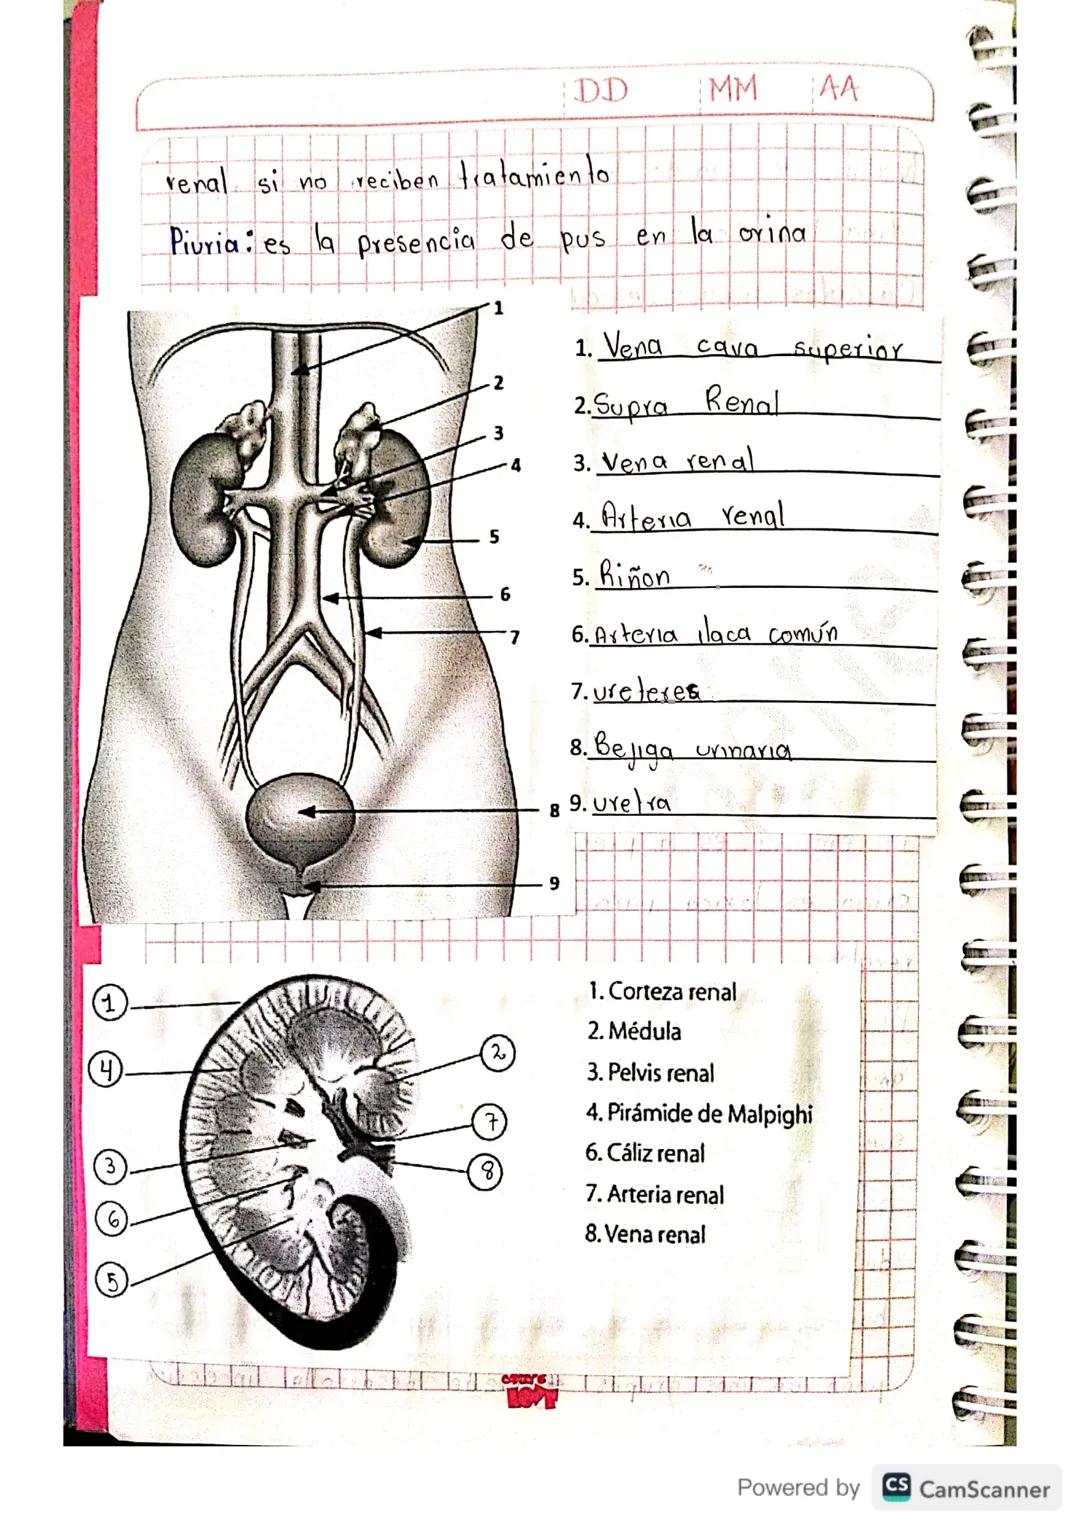 DD MM AA
renal si no reciben tratamiento
Piuria: es la presencia de pus en la orina
1
2
3
4
5
6
7
8
9
1. Vena cava superior
2. Supra Renal
3. Vena renal
4. Arteria renal
5. Riñon
6. Arteria ilaca común
7. ureteres
8. Bejiga urinaria
9. uretra
1
4
3
6
5
2
7
8
1. Corteza renal
2. Médula
3. Pelvis renal
4. Pirámide de Malpighi
6. Cáliz renal
7. Arteria renal
8. Vena renal
Powered by CS CamScanner